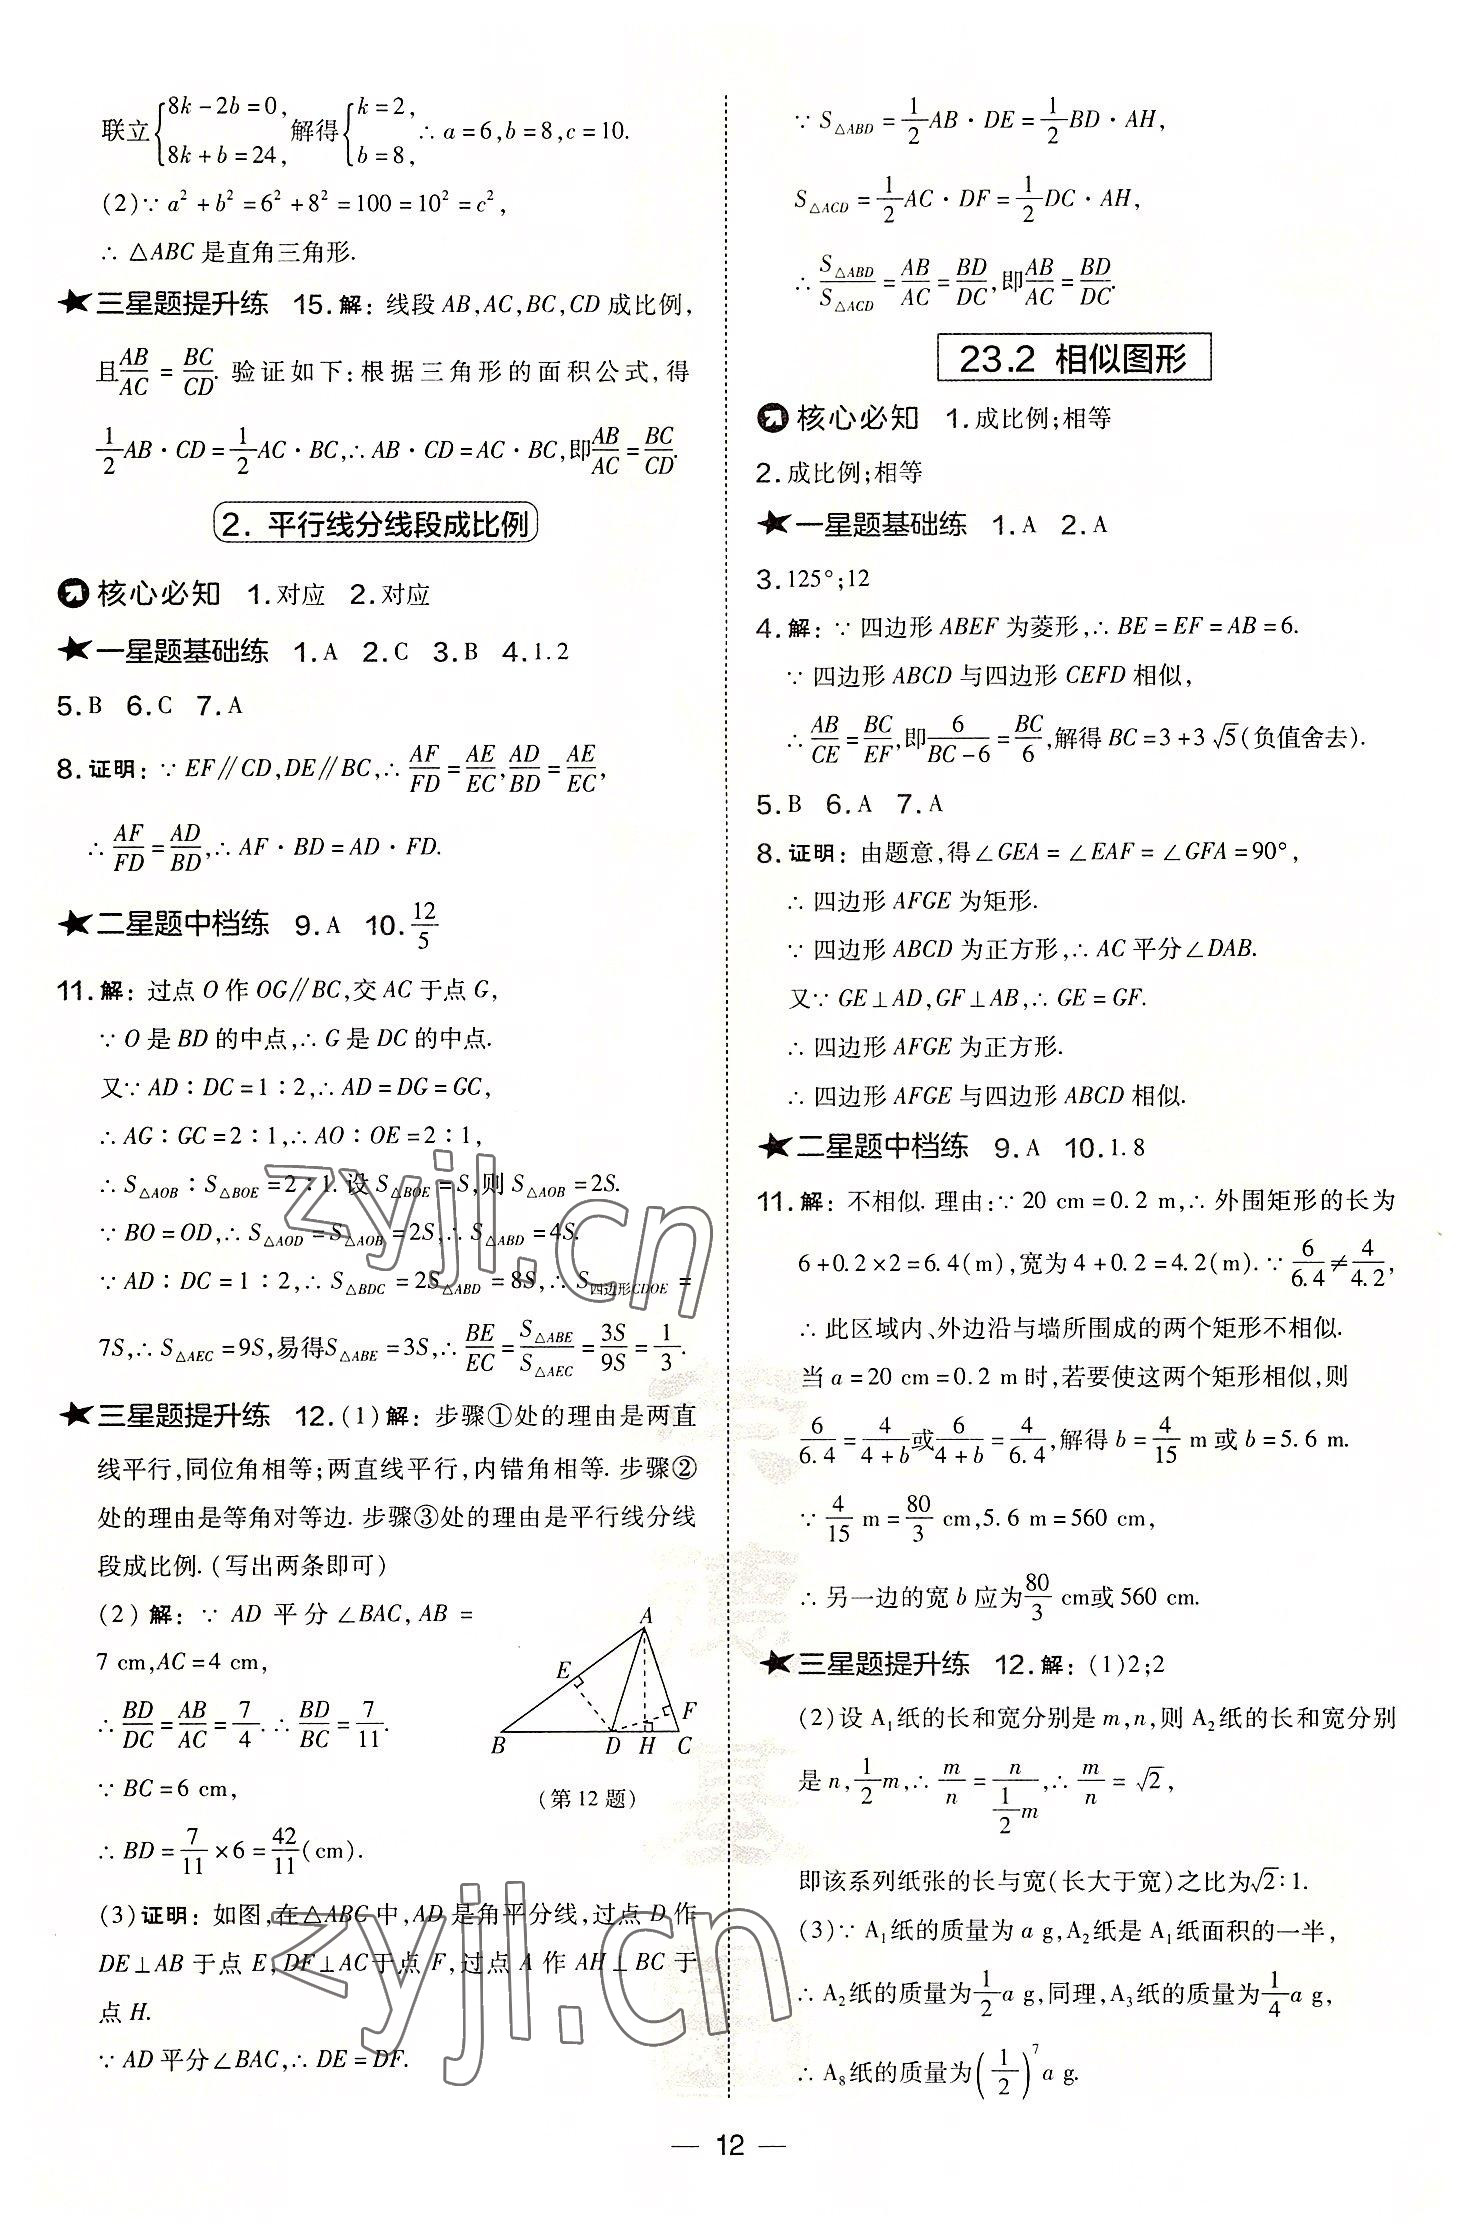 联立{8k-2b=0, 8k+b=24, 解得{k=2, b=8, ∴a=6,b=8,c=10.
(2)∵a²+b²=6²+8²=100=10²=c²,
∴△ABC是直角三角形.
★三星题提升练 15.解：线段AB,AC,BC,CD成比例,
且AB/AC=BC/CD. 验证如下：根据三角形的面积公式,得
1/2AB·CD=1/2AC·BC,∴AB·CD=AC·BC,即AB/AC=BC/CD.
2. 平行线分线段成比例
核心必知 1.对应 2.对应
★一星题基础练 1.A 2.C 3.B 4.1.2
5.B 6.C 7.A
8.证明：∵EF∥CD,DE∥BC,∴AF/FD=AE/EC,AD/BD=AE/EC,
∴AF/FD=AD/BD,∴AF·BD=AD·FD.
★二星题中档练 9.A 10.12/5
11.解：过点O作OG∥BC,交AC于点G,
∵O是BD的中点,∴G是DC的中点.
又∵AD∶DC=1∶2,∴AD=DG=GC,
∴AG∶GC=2∶1,∴AO∶OE=2∶1,
∴S△AOB∶S△BOE=2∶1.设S△BOE=S,则S△AOB=2S.
∵BO=OD,∴S△AOD=S△AOB=2S,∴S△ABD=4S.
∵AD∶DC=1∶2,∴S△BDC=2S△ABD=8S,∴S四边形CDOE=
7S,∴S△AEC=9S,易得S△ABE=3S,∴BE/EC=S△ABE/S△AEC=3S/9S=1/3.
★三星题提升练 12.(1)解：步骤①处的理由是两直
线平行,同位角相等;两直线平行,内错角相等. 步骤②
处的理由是等角对等边. 步骤③处的理由是平行线分线
段成比例.(写出两条即可)
(2)解：∵AD平分∠BAC,AB=
7 cm,AC=4 cm,
∴BD/DC=AB/AC=7/4.∴BD/BC=7/11.
∵BC=6 cm,
∴BD=7/11×6=42/11(cm).
A
E
F
B D H C
(第12题)
(3)证明：如图,在△ABC中,AD是角平分线,过点D作
DE⊥AB于点E,DF⊥AC于点F,过点A作AH⊥BC于
点H.
∵AD平分∠BAC,∴DE=DF.
∵S△ABD=1/2AB·DE=1/2BD·AH,
S△ACD=1/2AC·DF=1/2DC·AH,
∴S△ABD/S△ACD=AB/AC=BD/DC,即AB/AC=BD/DC.
23.2 相似图形
核心必知 1.成比例;相等
2.成比例;相等
★一星题基础练 1.A 2.A
3.125°;12
4.解：∵四边形ABEF为菱形,∴BE=EF=AB=6.
∵四边形ABCD与四边形CEFD相似,
∴AB/CE=BC/EF,即6/(BC-6)=BC/6,解得BC=3+3√5(负值舍去).
5.B 6.A 7.A
8.证明：由题意,得∠GEA=∠EAF=∠GFA=90°,
∴四边形AFGE为矩形.
∵四边形ABCD为正方形,∴AC平分∠DAB.
又∵GE⊥AD,GF⊥AB,∴GE=GF.
∴四边形AFGE为正方形.
∴四边形AFGE与四边形ABCD相似.
★二星题中档练 9.A 10.1.8
11.解：不相似. 理由：∵20 cm=0.2 m,∴外围矩形的长为
6+0.2×2=6.4(m),宽为4+0.2=4.2(m).∵6/6.4≠4/4.2,
∴此区域内、外边沿与墙所围成的两个矩形不相似.
当a=20 cm=0.2 m时,若要使这两个矩形相似,则
6/6.4=4/(4+b)或6/(4+b)=4/6.4,解得b=4/15 m或b=5.6 m.
∵4/15 m=80/3 cm,5.6 m=560 cm,
∴另一边的宽b应为80/3 cm或560 cm.
★三星题提升练 12.解：(1)2;2
(2)设A₁纸的长和宽分别是m,n,则A₂纸的长和宽分别
是n,1/2m,∴m/n=n/(1/2m),∴m/n=√2,
即该系列纸张的长与宽(长大于宽)之比为√2∶1.
(3)∵A₁纸的质量为a g,A₂纸是A₁纸面积的一半,
∴A₂纸的质量为1/2a g,同理,A₃纸的质量为1/4a g,
∴A₈纸的质量为(1/2)⁷a g.
— 12 —
zyjl.cn
zyjl.cn